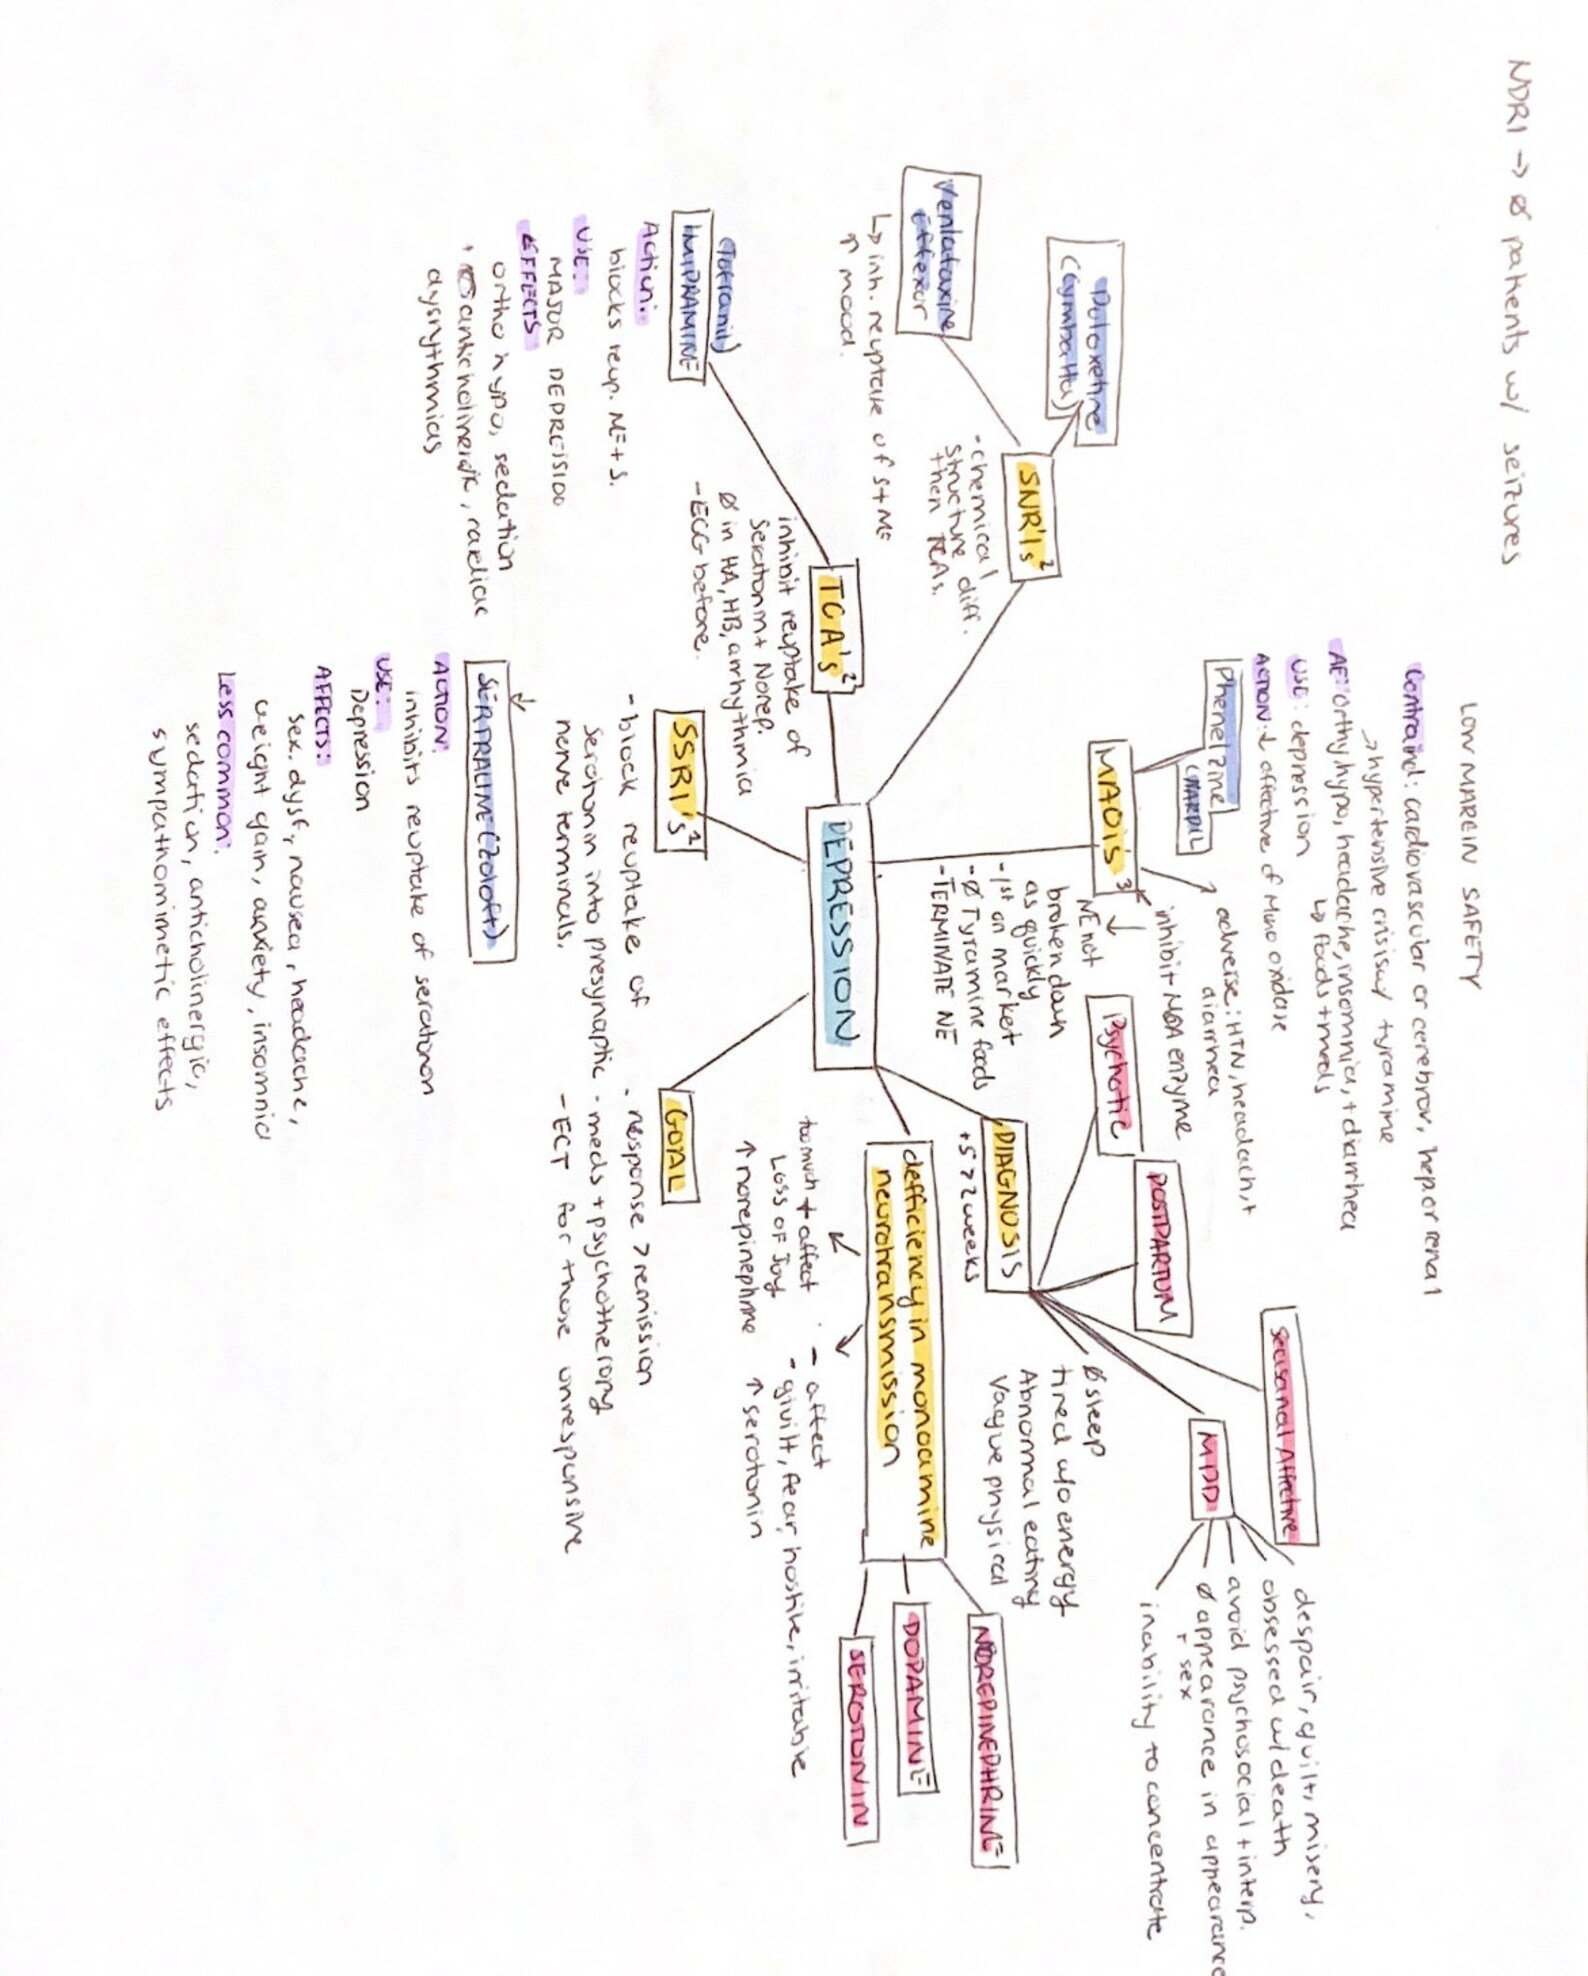 NDRI → ø patients w/ seizures
LOW MARGIN SAFETY
Contraind: cardiovascular or cerebrov, hep or renal
→ hypertensive crisis w/ tyramine
AE: orthohypo, headache, insomnia, + diarrhea
↳ foods + meds
USE: depression
ACTION: ↓ affective of Mono oxidase
Phenelzine
(NARDIL)
MAOIs³
adverse: HTN, headach, +
diarrhea
inhibit MOA enzyme
NE not
broken down
as quickly
- 1st on market
- ø Tyramine foods
- TERMINATE NE
Duloxetine
(Cymbalta)
Venlafaxine
Effexor
↳ inh. reuptake of S + NE
↑ mood.
SNRIs²
- chemical
structure diff.
then TCAs.
(Tofranil)
IMIPRAMINE
Action:
blocks reup. NE + S.
USE:
MAJOR DEPRESSIOO
EFFECTS
ortho hypo, sedation
anticholinergic, cardiac
dysrythmias
TCA's²
inhibit reuptake of
Seratonin + Norep.
ø in HA, HB, arrhythmia
- ECG before.
DEPRESSION
SSRI's²
- block reuptake of
serotonin into presynaptic
nerve terminals.
SERTRALINE (Zoloft)
ACTION:
inhibits reuptake of seratonon
USE:
Depression
AFFECTS:
sex. dysf, nausea, headache,
weight gain, anxiety, insomnia
Less common:
sedation, anticholinergic,
sympathomimetic effects
GOAL
- response > remission
- meds + psychotheropy
- ECT for those unresponsive
DIAGNOSIS
+5 > 2 weeks
Psychotic
POSTPARTUM
Seasonal Affective
MDD
despair, guilt, misery,
obsessed w/ death
avoid psychosocial + interp.
ø appearance in appearance
+ sex
inability to concentrate
ø sleep
tired w/o energy
Abnormal eating
Vague physical
defficiency in monoamine
neurotransmission
too much + affect
Loss of Joy
↑ norepinephrine
- affect
- guilt, fear, hostile, irritable
↑ serotonin
NOREPINEPHRINE
DOPAMINE
SEROTONIN